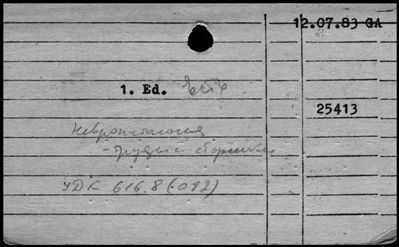 12.07.83 GA
1. Ed. есть
25413
Невропатология
- Труды и сборники
УДК 616.8(082)